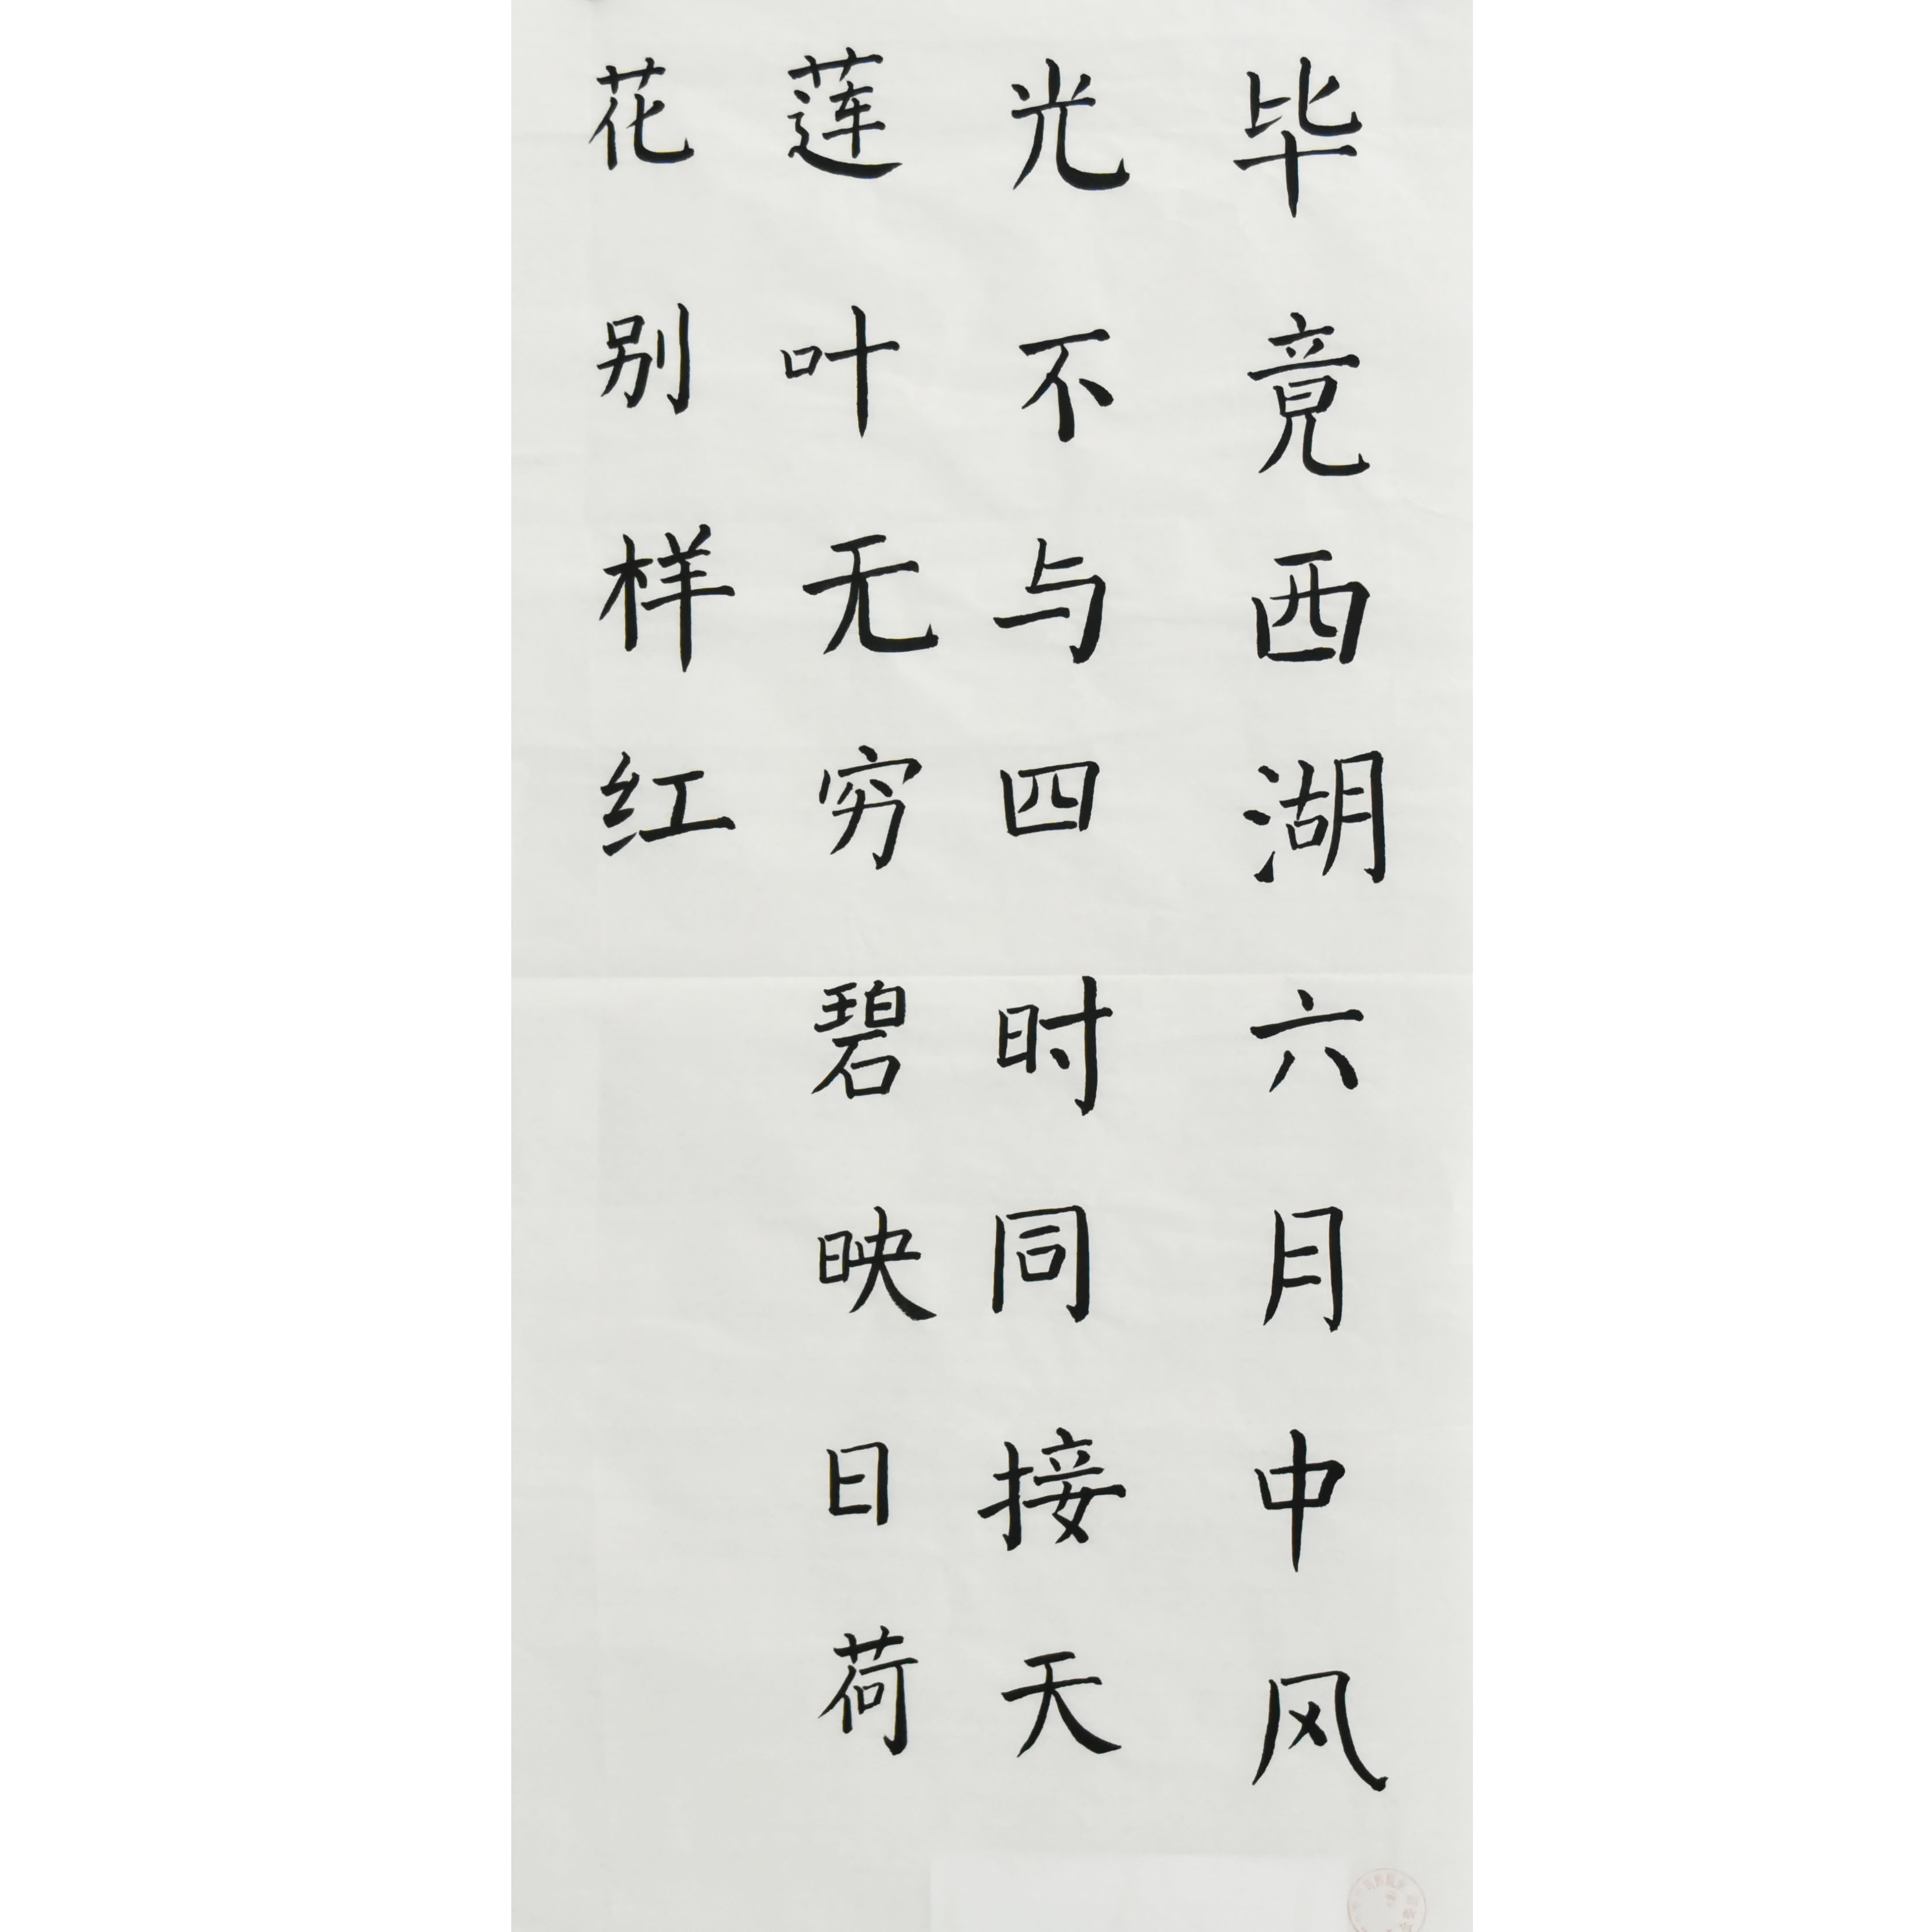 毕竟西湖六月中风
光不与四时同接天
莲叶无穷碧映日荷
花别样红